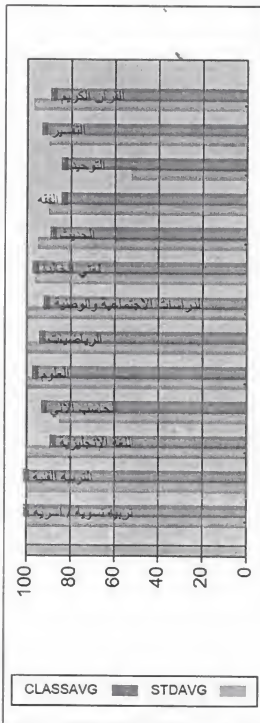 القرآن الكريم
التفسير
التوحيد
الفقه
الحديث
لغتي
الدراسات الاجتماعية والوطنية
الرياضيات
العلوم
حاسب الالي
اللغة الانجليزية
التربية الفنية
تربية نسوية / اسرية
100
80
60
40
20
0
CLASSAVG
STDAVG